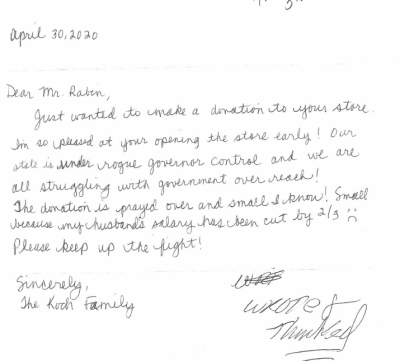 April 30, 2020
Dear Mr. Rabin,
Just wanted to make a donation to your store.
I'm so pleased at your opening the store early! Our
state is under rogue governor control and we are
all struggling with government over reach!
The donation is prayed over and small I know! Small
because my husbands salary has been cut by 2/3 :(
Please keep up the fight!
Sincerely,
The Koch Family
wrote &
Thanked